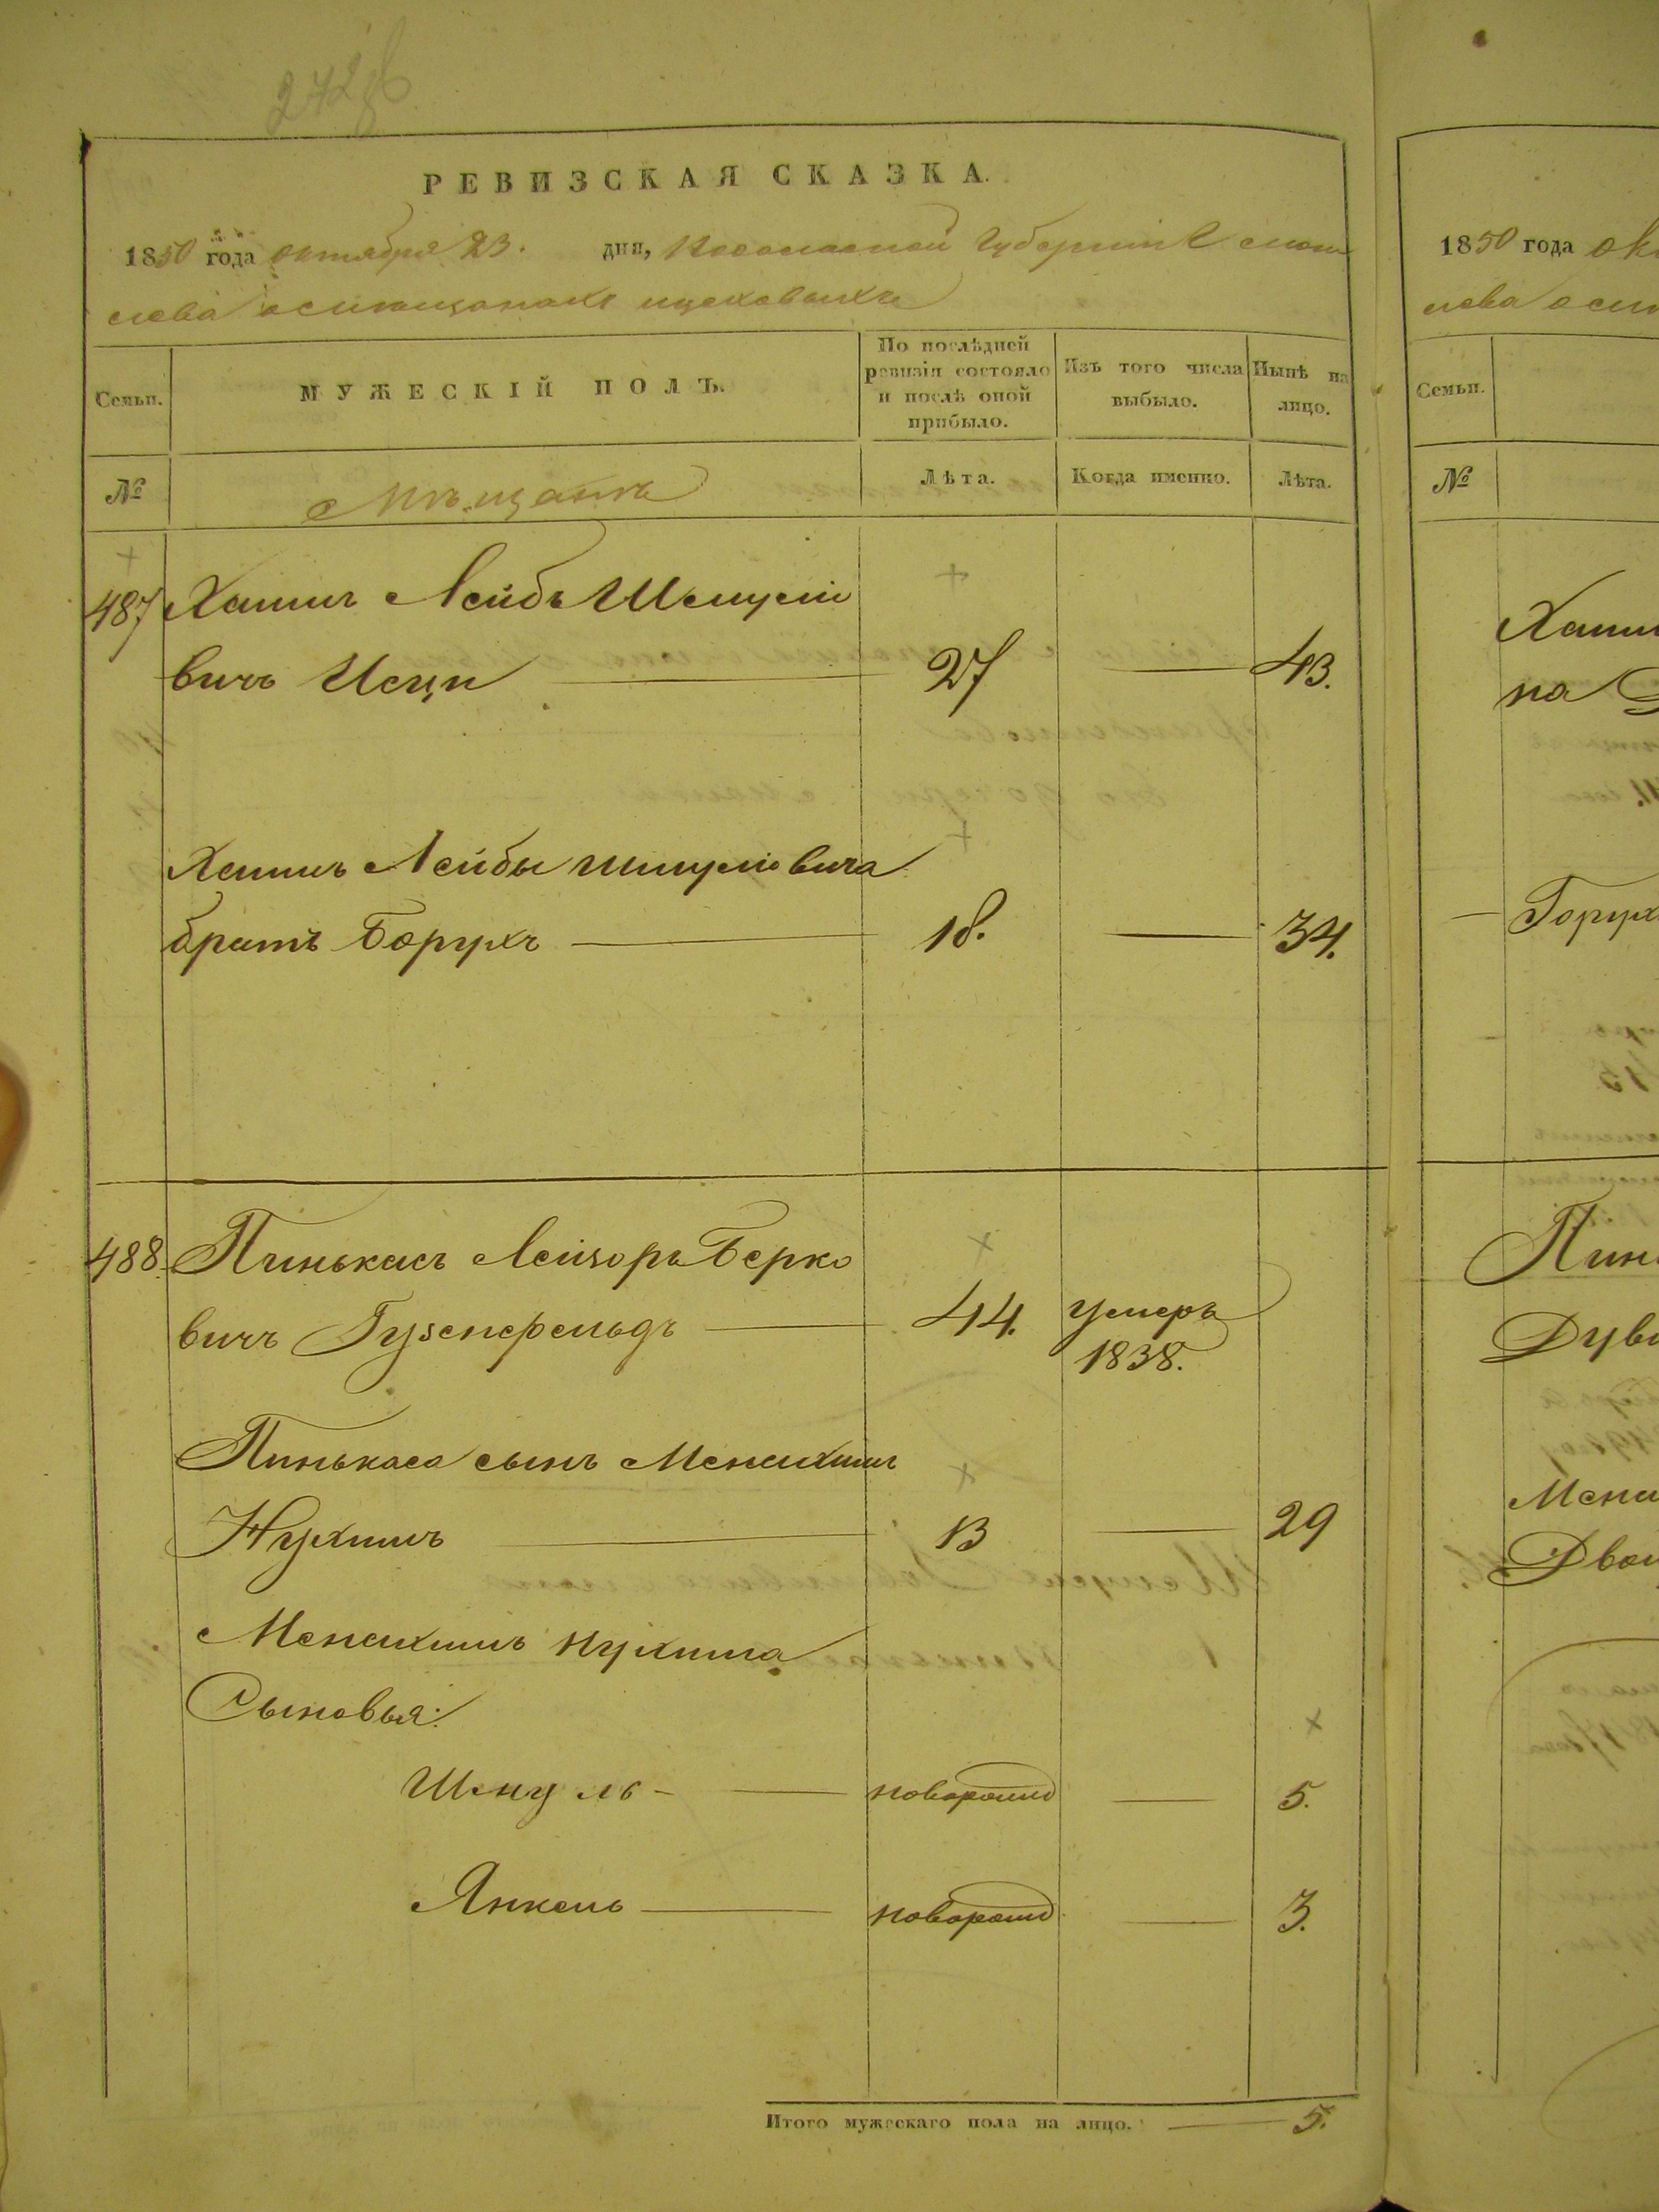 272 об
РЕВИЗСКАЯ СКАЗКА.
1850 года октября 23. дня, Подольской Губернии
о мещанахъ
Семьи.
МУЖЕСКІЙ ПОЛЪ.
По послѣдней ревизіи состояло и послѣ оной прибыло.
Изъ того числа выбыло.
Нынѣ на лицо.
№
Мѣщанъ
Лѣта.
Когда именно.
Лѣта.
487 Хаимъ Лейбъ Шмуліо
вичъ 27 — 43.
Хаимъ Лейбы Шмуліовича
братъ Борухъ — 18. — 34.
488. Пинькасъ Лейзоръ Берко
вичъ Гузенфельдъ — 44. умеръ
1838.
Пинькаса сынъ Менахимъ
Нухимъ — 13 — 29
Менахимъ Нухима
Сыновья:
Шмуль — новорожд — 5.
Янкель — новорожд — 3.
Итого мужескаго пола на лицо. — 5.
1850 года
Семьи.
№
Хаим
на
Борух
Пин
Мена